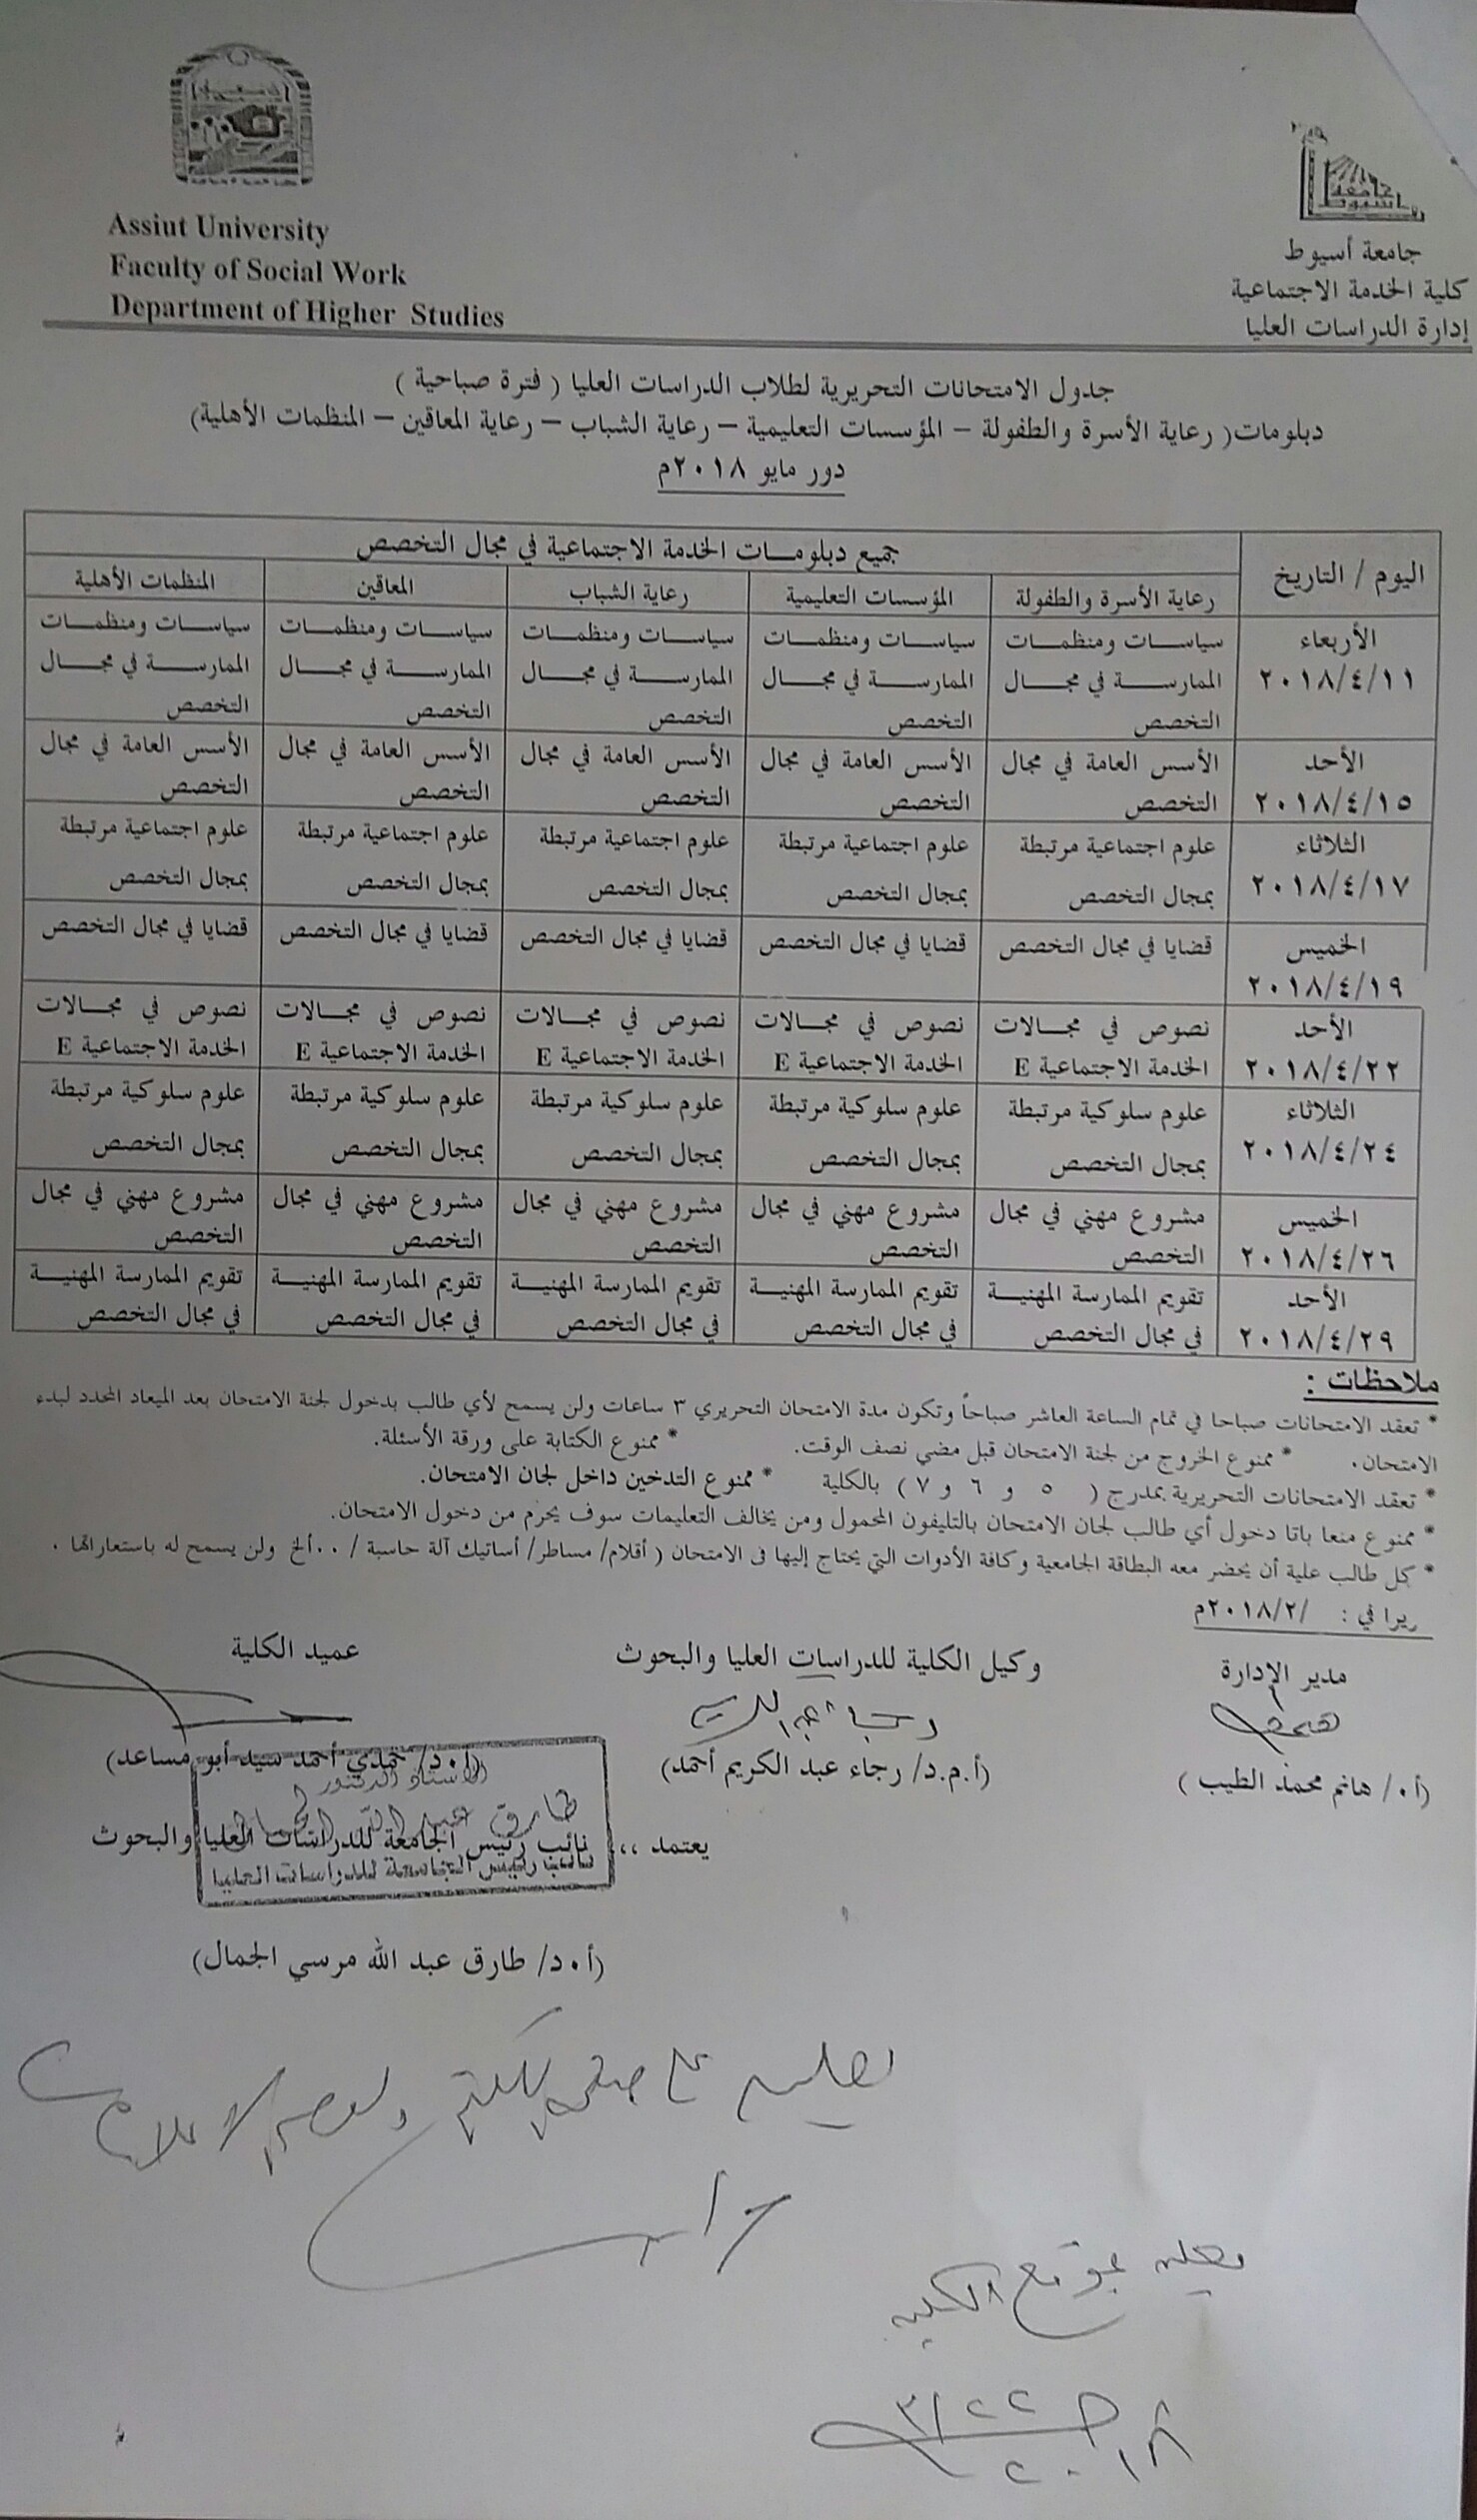 Assiut University
Faculty of Social Work
Department of Higher Studies
جامعة أسيوط
كلية الخدمة الاجتماعية
إدارة الدراسات العليا
جدول الامتحانات التحريرية لطلاب الدراسات العليا ( فترة صباحية )
دبلومات( رعاية الأسرة والطفولة – المؤسسات التعليمية – رعاية الشباب – رعاية المعاقين – المنظمات الأهلية)
دور مايو ٢٠١٨م
اليوم / التاريخ
جميع دبلومات الخدمة الاجتماعية في مجال التخصص
رعاية الأسرة والطفولة المؤسسات التعليمية رعاية الشباب المعاقين المنظمات الأهلية
الأربعاء سياسات ومنظمات سياسات ومنظمات سياسات ومنظمات سياسات ومنظمات سياسات ومنظمات
٢٠١٨/٤/١١ الممارسة في مجال الممارسة في مجال الممارسة في مجال الممارسة في مجال الممارسة في مجال
التخصص التخصص التخصص التخصص التخصص
الأحد الأسس العامة في مجال الأسس العامة في مجال الأسس العامة في مجال الأسس العامة في مجال الأسس العامة في مجال
٢٠١٨/٤/١٥ التخصص التخصص التخصص التخصص التخصص
الثلاثاء علوم اجتماعية مرتبطة علوم اجتماعية مرتبطة علوم اجتماعية مرتبطة علوم اجتماعية مرتبطة علوم اجتماعية مرتبطة
٢٠١٨/٤/١٧ بمجال التخصص بمجال التخصص بمجال التخصص بمجال التخصص بمجال التخصص
الخميس قضايا في مجال التخصص قضايا في مجال التخصص قضايا في مجال التخصص قضايا في مجال التخصص قضايا في مجال التخصص
٢٠١٨/٤/١٩
الأحد نصوص في مجالات نصوص في مجالات نصوص في مجالات نصوص في مجالات نصوص في مجالات
٢٠١٨/٤/٢٢ الخدمة الاجتماعية E الخدمة الاجتماعية E الخدمة الاجتماعية E الخدمة الاجتماعية E الخدمة الاجتماعية E
الثلاثاء علوم سلوكية مرتبطة علوم سلوكية مرتبطة علوم سلوكية مرتبطة علوم سلوكية مرتبطة علوم سلوكية مرتبطة
٢٠١٨/٤/٢٤ بمجال التخصص بمجال التخصص بمجال التخصص بمجال التخصص بمجال التخصص
الخميس مشروع مهني في مجال مشروع مهني في مجال مشروع مهني في مجال مشروع مهني في مجال مشروع مهني في مجال
٢٠١٨/٤/٢٦ التخصص التخصص التخصص التخصص التخصص
الأحد تقويم الممارسة المهنية تقويم الممارسة المهنية تقويم الممارسة المهنية تقويم الممارسة المهنية تقويم الممارسة المهنية
٢٠١٨/٤/٢٩ في مجال التخصص في مجال التخصص في مجال التخصص في مجال التخصص في مجال التخصص
ملاحظات :
* تعقد الامتحانات صباحا في تمام الساعة العاشر صباحاً وتكون مدة الامتحان التحريري ٣ ساعات ولن يسمح لأي طالب بدخول لجنة الامتحان بعد الميعاد المحدد لبدء
الامتحان. * ممنوع الخروج من لجنة الامتحان قبل مضي نصف الوقت. * ممنوع الكتابة على ورقة الأسئلة.
* تعقد الامتحانات التحريرية بمدرج ( ٥ و ٦ و ٧ ) بالكلية * ممنوع التدخين داخل لجان الامتحان.
* ممنوع منعا باتا دخول أي طالب لجان الامتحان بالتليفون المحمول ومن يخالف التعليمات سوف يحرم من دخول الامتحان.
* كل طالب علية أن يحضر معه البطاقة الجامعية وكافة الأدوات التي يحتاج إليها فى الامتحان ( أقلام/ مساطر/ أساتيك آلة حاسبة /٠٠ ألخ ولن يسمح له باستعاراتها .
ريرا في : /٢٠١٨/٢م
مدير الإدارة وكيل الكلية للدراسات العليا والبحوث عميد الكلية
(أ٠/ هانم محمد الطيب ) (أ.م.د/ رجاء عبد الكريم أحمد) (أ٠د/ حمدي أحمد سيد أبو مساعد)
الأستاذ الدكتور
يعتمد ،، نائب رئيس الجامعة للدراسات العليا والبحوث
نائب رئيس الجامعة للدراسات العليا
(أ٠د/ طارق عبد الله مرسي الجمال)
يعلن بموقع الكلية
٣/٢٢
٢٠١٨